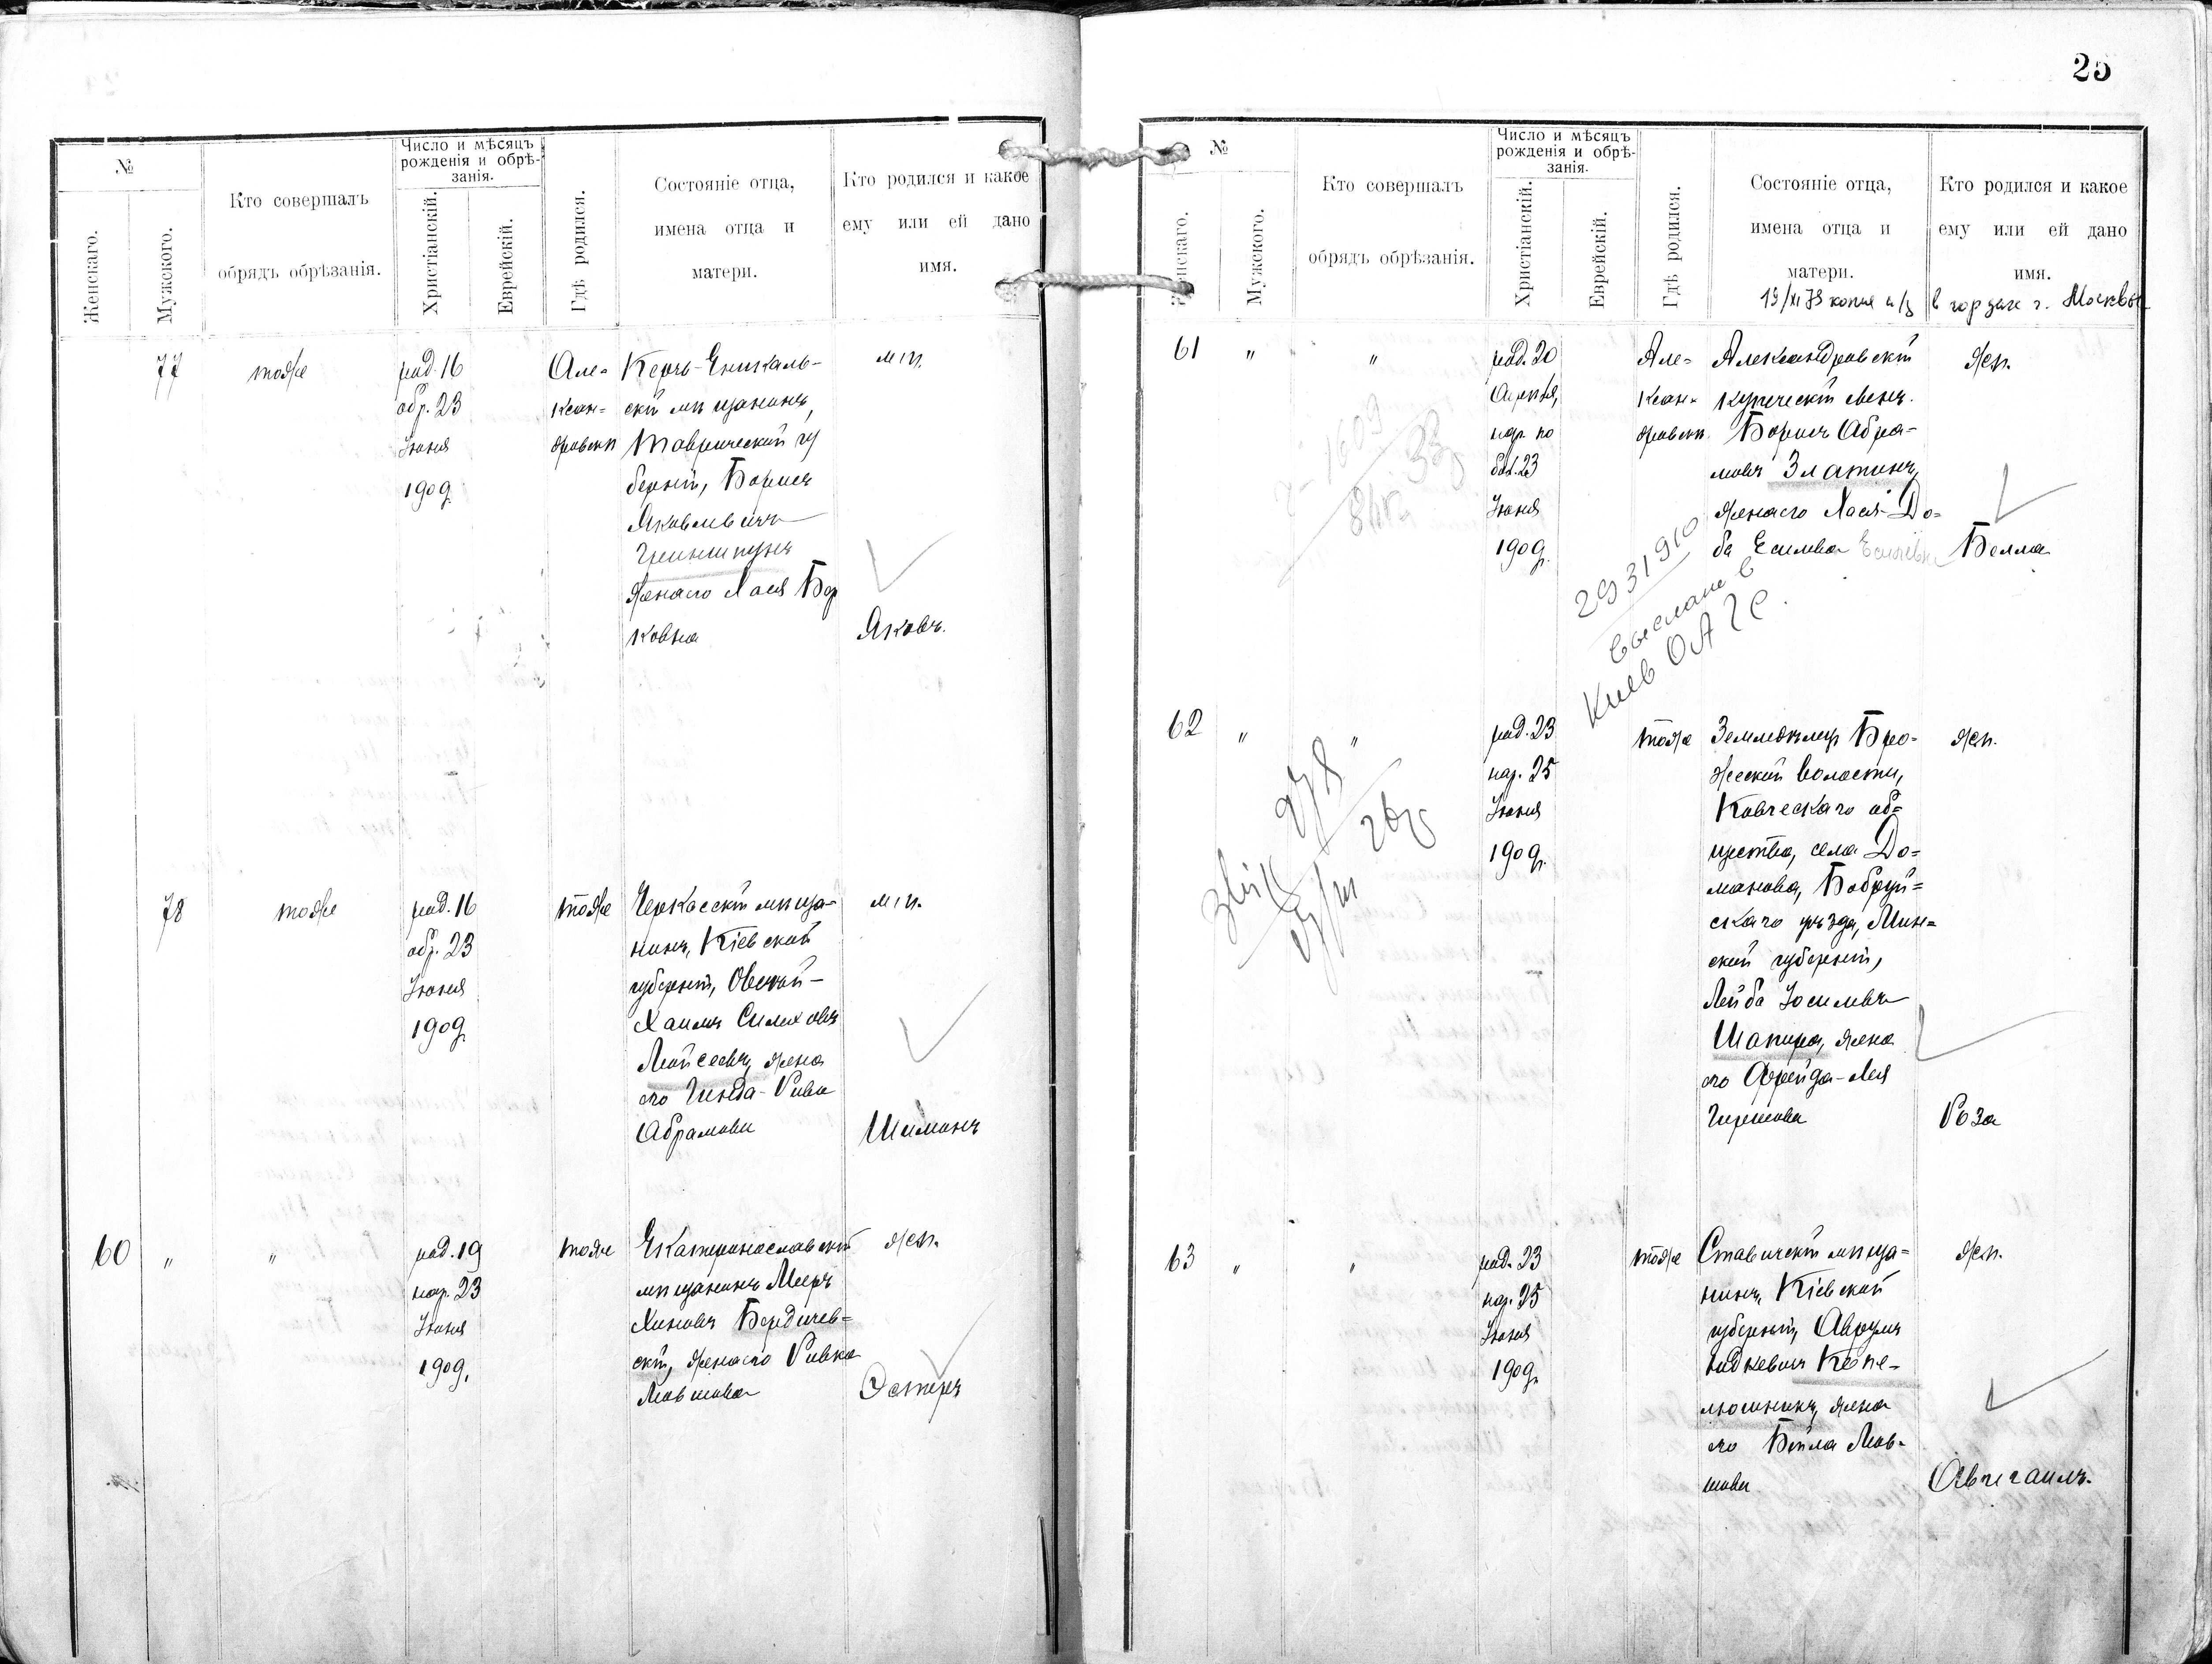 25
№
Женскаго.
Мужского.
Кто совершалъ
обрядъ обрѣзанія.
Число и мѣсяцъ
рожденія и обрѣ-
занія.
Христіанскій.
Еврейскій.
Гдѣ родился.
Состояніе отца,
имена отца и
матери.
Кто родился и какое
ему или ей дано
имя.
77
тоже
род. 16
обр. 23
Іюня
1909
Але-
ксан-
дровск
Керчь-Еникаль-
скій мѣщанинъ,
Таврической гу
берніи, Борисъ
Яковлевичъ
Гринштунъ
жена его Хася Бер
ковна
муж.
Яковъ.
78
тоже
род. 16
обр. 23
Іюня
1909
тоже
Черкасскій мѣща-
нинъ, Кіевской
губерніи, Овсей-
Хаимъ
Мойсеевъ, жена
его Гинда-Рива
Абрамова
муж.
Шимонъ
60 " "
род. 19
нар. 23
Іюня
1909.
тоже
Екатеринославскій
мѣщанинъ Мееръ
Хиновъ Бердичев-
скій, жена его Ривка
Мовшова
жен.
Эстеръ
№
Женскаго.
Мужского.
Кто совершалъ
обрядъ обрѣзанія.
Число и мѣсяцъ
рожденія и обрѣ-
занія.
Христіанскій.
Еврейскій.
Гдѣ родился.
Состояніе отца,
имена отца и
матери.
Кто родился и какое
ему или ей дано
имя.
19/XI 73 копия в гор загс г. Москвы
61 " "
род. 20
Апрѣля,
нар. по
бол. 23
Іюня
1909.
Але-
ксан-
дровск.
Александровскій
купеческій сынъ
Борисъ Абра-
мовъ Златинъ,
жена его Хася-До-
ба Есилева
жен.
Белла
1609
33
2931910
выслано в
Киев ОАГС.
62 " "
род. 23
нар. 25
Іюня
1909.
тоже
Земледѣлецъ Бро-
жской волости,
Ковческаго об-
щества, села До-
манова, Бобруй-
скаго уѣзда, Мин-
ской губерніи,
Лейба Іосилевъ
Шапира, жена
его Фрейда-Лея
Гиршова
жен.
Роза
978
63 " "
род. 23
нар. 25
Іюня
1909.
тоже
Ставичскій мѣща-
нинъ, Кіевской
губерніи, Аврумъ
Копе-
люшникъ, жена
его Бейла Мов-
шова
жен.
Авигаилъ.